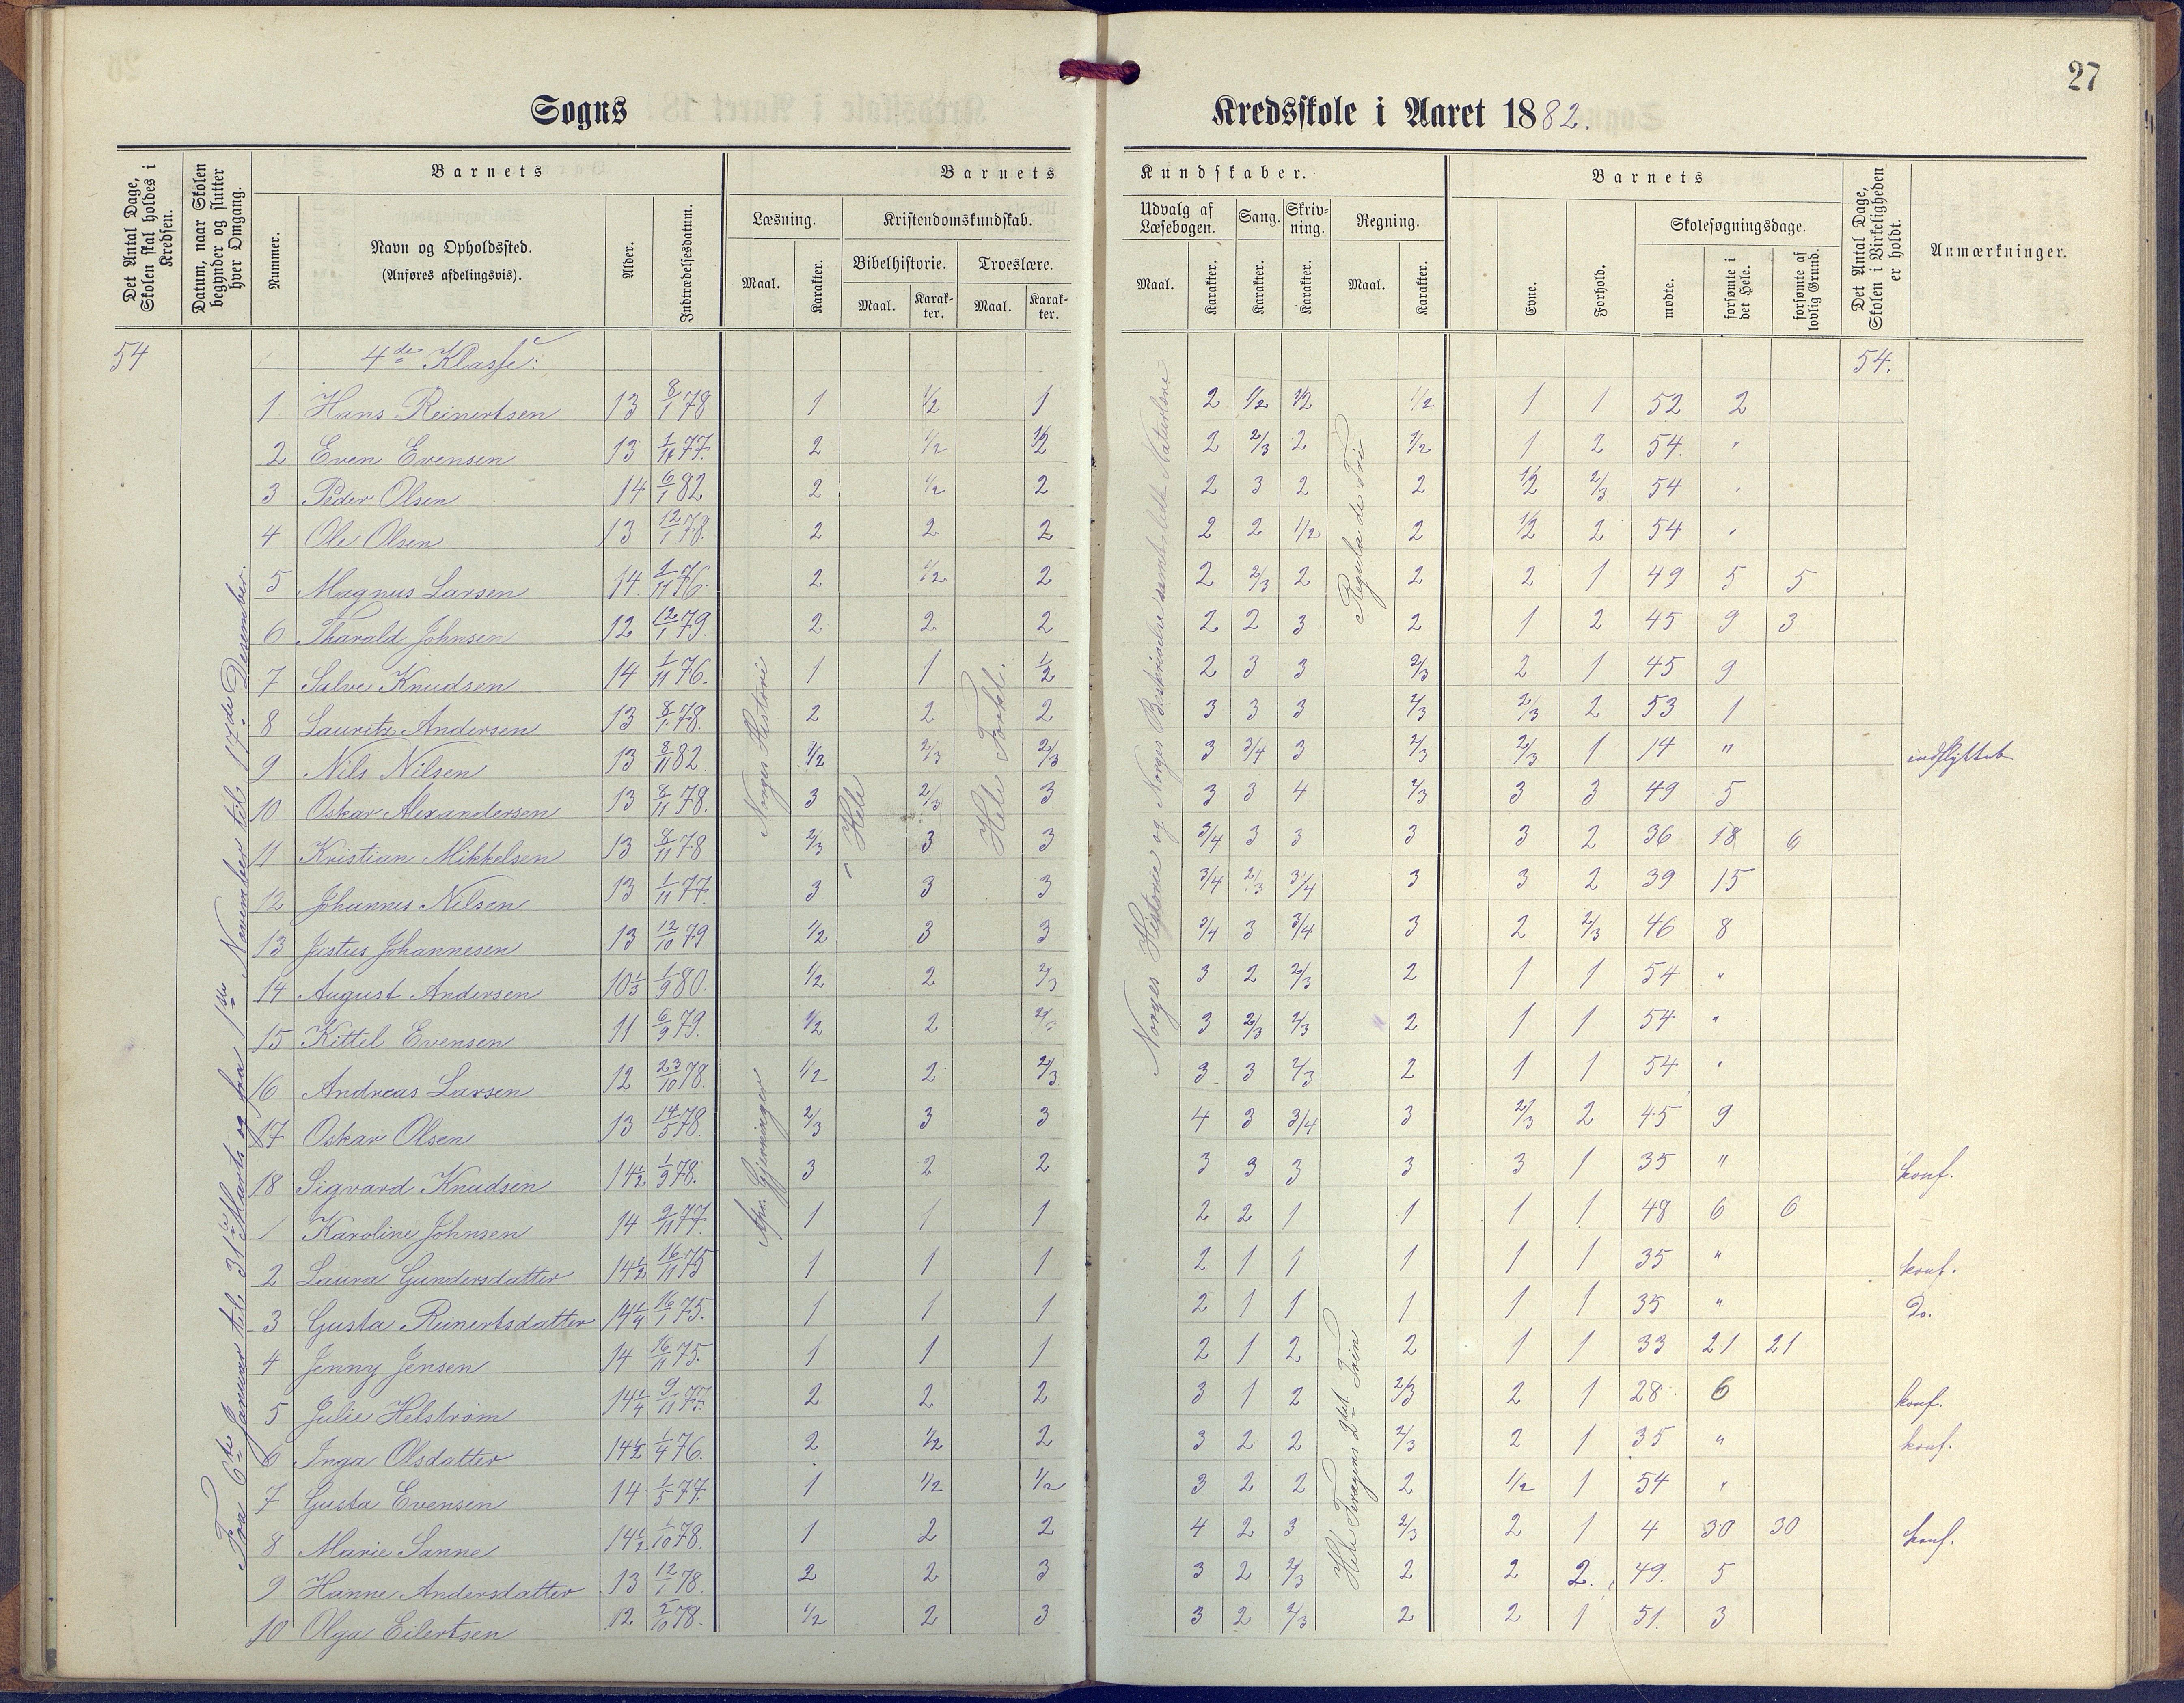 27
Sogns Kredsskole i Aaret 1882.
Det Antal Dage, Skolen skal holdes i Kredsen.
Datum, naar Skolen begynder og slutter hver Omgang.
Barnets
Nummer.
Navn og Opholdssted.
(Anføres afdelingsvis).
Alder.
Indtrædelsesdatum.
Barnets Kundskaber.
Læsning.
Maal.
Karakter.
Kristendomskundskab.
Bibelhistorie.
Maal.
Karakter.
Troeslære.
Maal.
Karakter.
Udvalg af Læsebogen.
Maal.
Karakter.
Sang.
Karakter.
Skrivning.
Karakter.
Regning.
Maal.
Karakter.
Barnets
Evne.
Forhold.
Skolesøgningsdage.
mødte.
forsømte i det Hele.
forsømte af lovlig Grund.
Det Antal Dage, Skolen i Virkeligheden er holdt.
Anmærkninger.
54 4de Klasse: 54.
Fra 6te Januar til 31te Marts og fra 1ste November til 17de Desember.
Norges Historie
Hele
Hele Forkl.
Norges Historie og Norges Beskrivelse samt Naturlære
Regula de Tri
Hele Tin 2det Trin
1 Hans Reinertsen 13 8/1 78 1 1/2 1 2 1/2 1/2 1/2 1 1 52 2
2 Even Evensen 13 1/11 77. 2 1/2 1/2 2 2/3 2 1/2 1 2 54. "
3 Peder Olsen 14 6/1 82 2 1/2 2 2 3 2 2 1/2 2/3 54 "
4 Ole Olsen 13 12/1 78. 2 2 2 2 2 1/2 2 1/2 2 54 "
5 Magnus Larsen 14 1/11 76. 2 1/2 2 2 2/3 2 2 2 1 49 5 5
6 Tharald Johnsen 12 12/1 79. 2 2 2 2 2 3 2 1 2 45 9 3
7 Salve Knudsen 14 1/11 76. 1 1 1/2 2 3 3 2/3 2 1 45 9
8 Lauritz Andersen 13 8/1 78. 2 2 2 3 3 3 2/3 2/3 2 53 1
9 Nils Nilsen 13 8/11 82 1/2 2/3 2/3 3 3/4 3 2/3 2/3 1 14 " indflyttet
10 Oskar Alexandersen 13 8/11 78. 3 2/3 3 3 3 4 2/3 3 3 49 5
11 Kristian Mikkelsen 13 8/11 78 2/3 3 3 3/4 3 3 3 3 2 36 18 6
12 Johannes Nilsen 13 1/11 77. 3 3 3 3/4 2/3 3/4 3 3 2 39 15
13 Justus Johannesen 13 12/10 79. 1/2 3 3 3/4 3 3/4 3 2 2/3 46 8
14 August Andersen 10 1/3 1/9 80. 1/2 2 2/3 3 2 2/3 2 1 1 54 "
15 Kittel Evensen 11 6/9 79. 1/2 2 2/3 3 2/3 2/3 2 1 1 54 "
16 Andreas Larsen 12 23/10 78. 1/2 2 2/3 3 3 2/3 2 1 1 54 "
17 Oskar Olsen 13 14/5 78. 2/3 3 3 4 3 3/4 3 2/3 2 45 9
18 Sigvard Knudsen 14 1/2 1/9 78. 3 2 2 3 3 3 3 3 1 35 " konf.
1 Karoline Johnsen 14 9/11 77. 1 1 1 2 2 1 1 1 1 48 6 6
2 Laura Gundersdatter 14 1/2 16/11 75 1 1 1 2 1 1 1 1 1 35 " konf.
3 Gusta Reinertsdatter 14 1/4 16/1 75. 1 1 1 2 1 1 1 1 1 35 " Do.
4 Jenny Jensen 14 16/11 75. 1 1 1 2 1 2 2 1 1 33 21 21
5 Julie Helstrøm 14 1/4 9/11 77. 2 2 2 3 1 2 2/3 2 1 28 6 konf.
6 Inga Olsdatter 14 1/2 1/4 76. 2 1/2 2 3 2 2 2/3 2 1 35 " konf.
7 Gusta Evensen 14 1/5 77. 1 1/2 1/2 3 2 2 2 1/2 1 54 "
8 Marie Sanne 14 1/2 1/10 78. 1 2 2 4 2 3 2/3 2 1 4 30 30 konf.
9 Hanne Andersdatter 13 12/1 78. 2 2 3 3 2 2/3 2 2 2. 49. 5
10 Olga Eilertsen 12 2/10 78. 1/2 2 3 3 2 2/3 2 2 1 51. 3